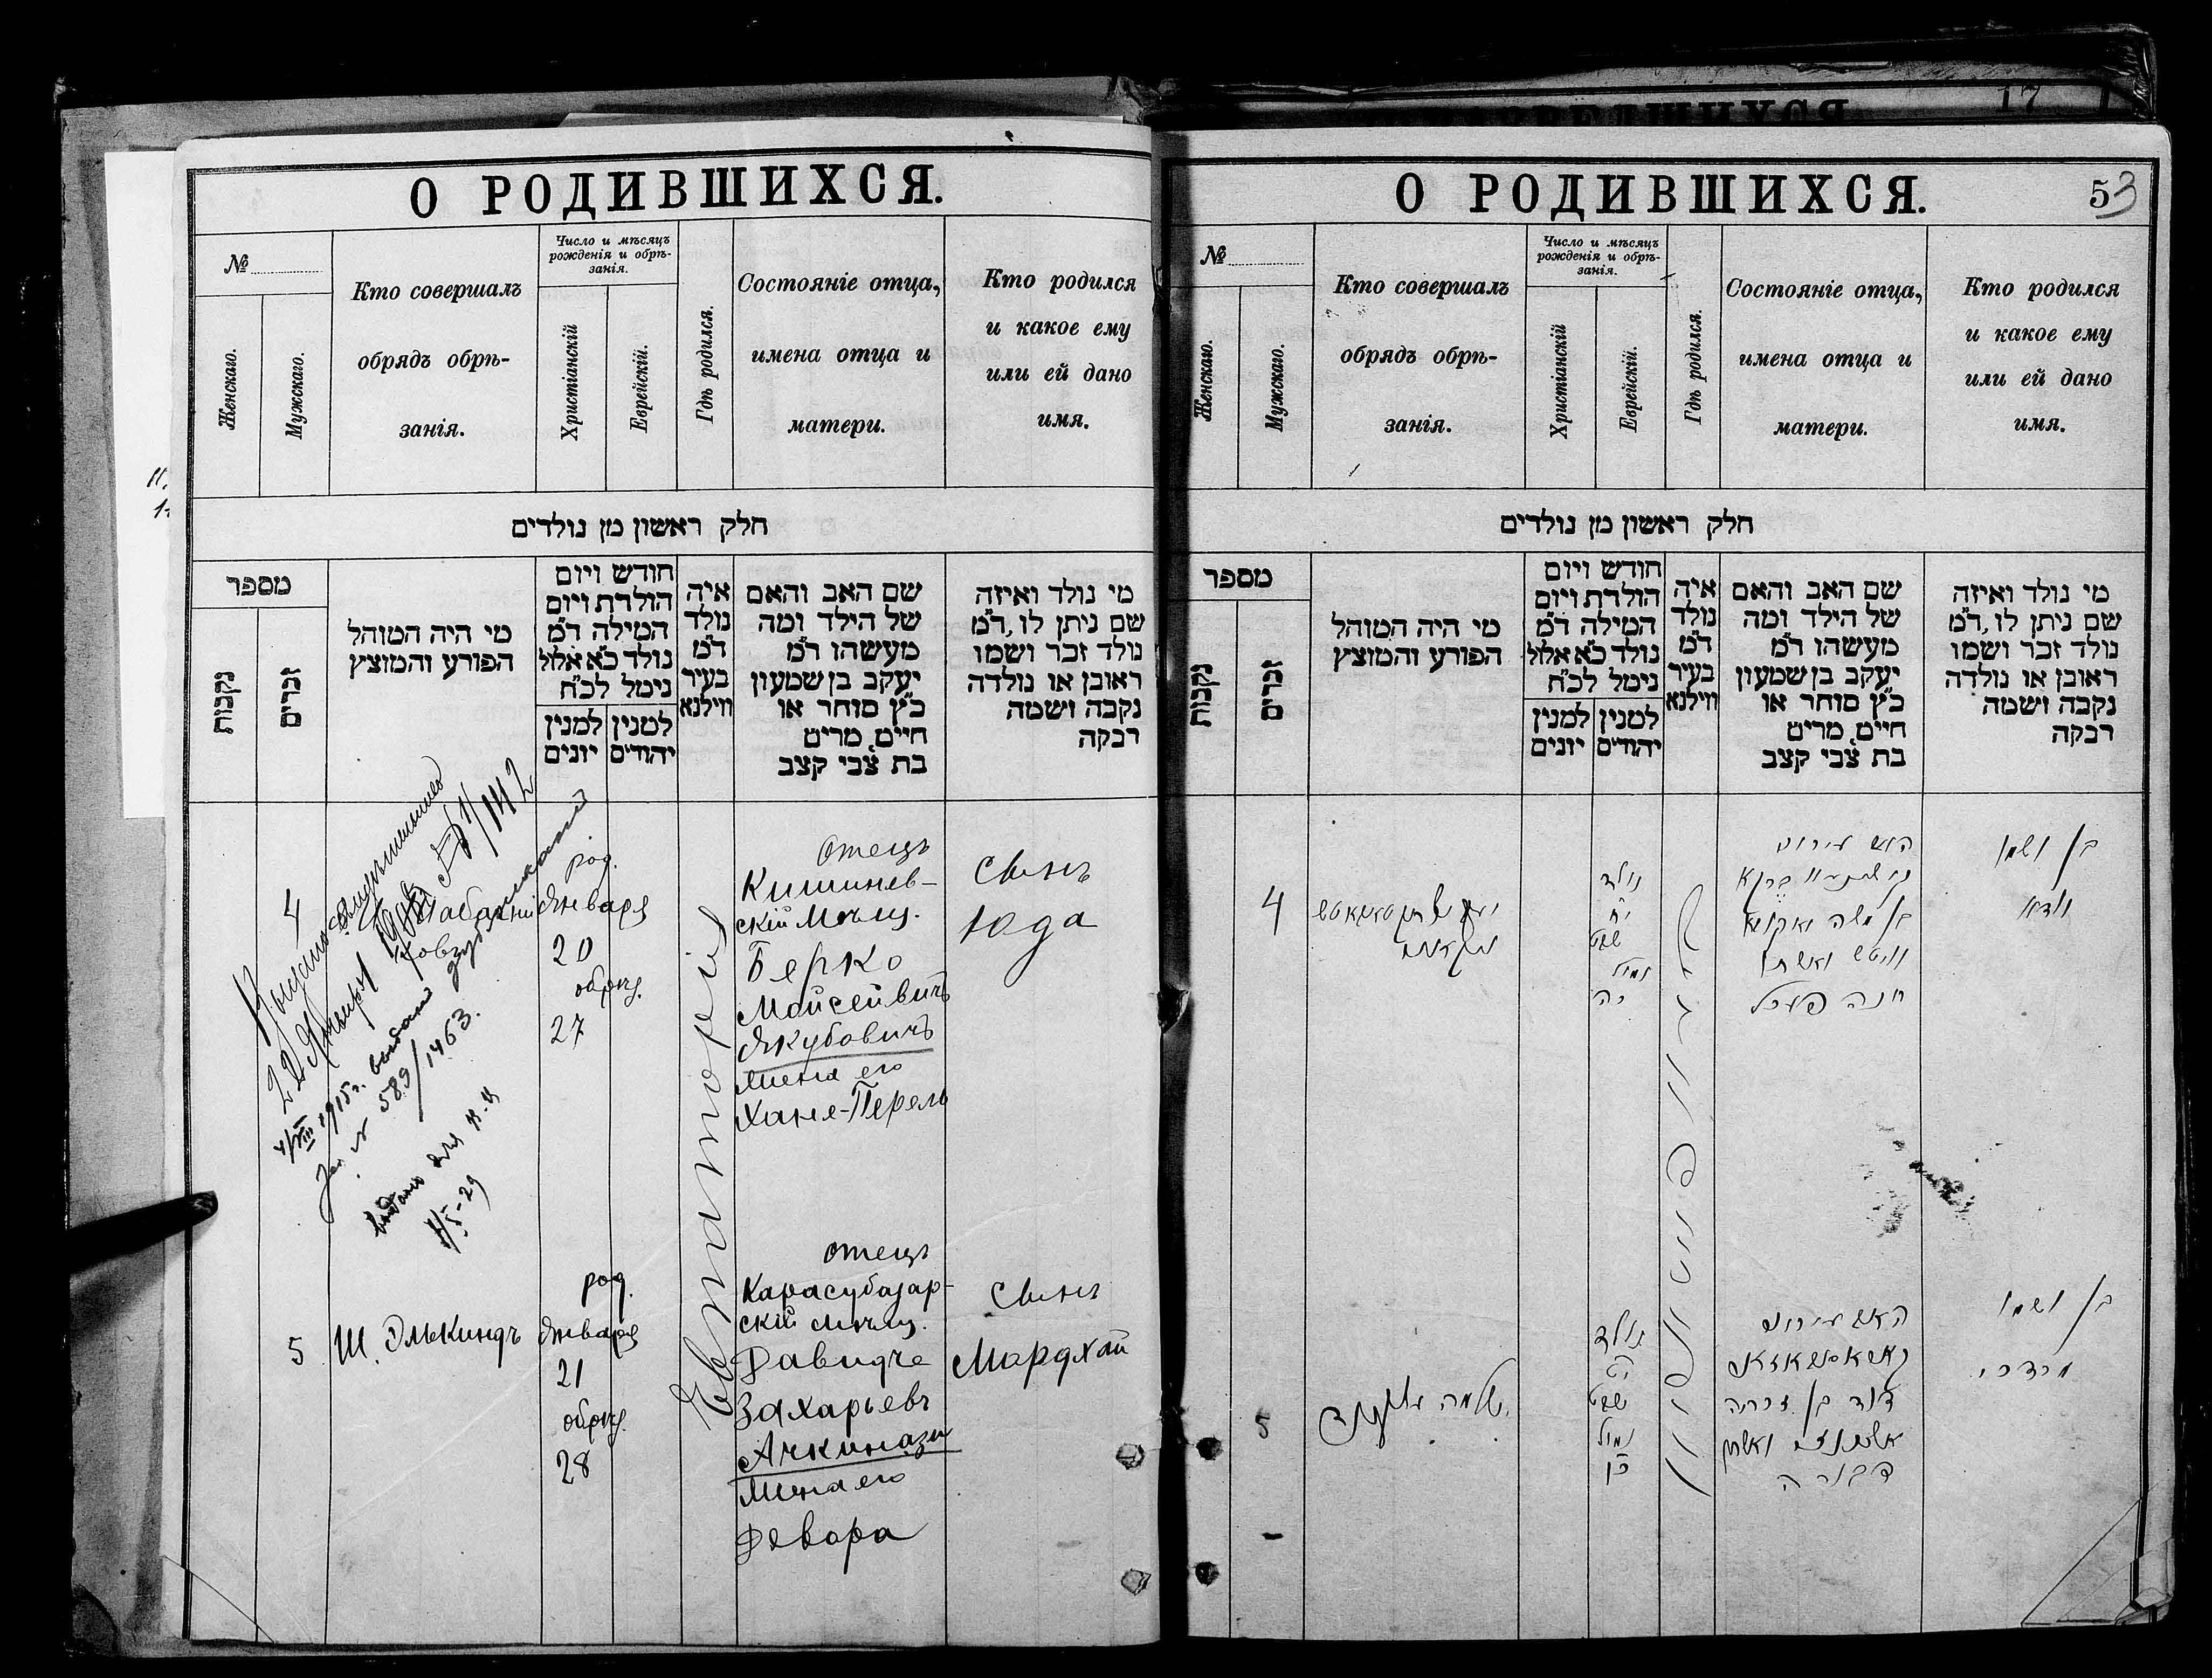 О РОДИВШИХСЯ.
№
Женскаго.
Мужскаго.
Кто совершалъ
обрядъ обрѣ-
занія.
Число и мѣсяцъ
рожденія и обрѣ-
занія.
Христіанскій
Еврейскій.
Гдѣ родился.
Состояніе отца,
имена отца и
матери.
Кто родился
и какое ему
или ей дано
имя.
חלק ראשון מן נולדים
מספר
נקבות
זכרים
מי היה המוהל
הפורע והמוצץ
חודש ויום
הולדת ויום
המילה ד״מ
נולד כ״א אלול
נימל לכ״ח
למנין יהודים
למנין יונים
איה
נולד
ד״מ
בעיר
ווילנא
שם האב והאם
של הילד ומה
מעשהו ד״מ
יעקב בן שמעון
כ״ץ סוחר או
חיים, מרים
בת צבי קצב
מי נולד ואיזה
שם ניתן לו, ד״מ
נולד זכר ושמו
ראובן או נולדה
נקבה ושמה
רבקה
4
род.
Января
20
обрѣз.
27
Евпаторій
Отецъ
Кишинев-
скій Мѣщ.
Берко
Мойсеивичъ
Якубовичъ
Жена его
Ханя-Перель
Сынъ
Юда
1915 г. выдано
за № 589/1463.
выдано для
5
Ш. Элькиндъ
род.
Января
21
обрѣз.
28
отецъ
Карасубазар-
скій мѣщ.
Давидче
Захарьевъ
Ачкинази
Жена его
Девора
Сынъ
Мордхай
17
О РОДИВШИХСЯ.
53
№
Женскаго.
Мужскаго.
Кто совершалъ
обрядъ обрѣ-
занія.
Число и мѣсяцъ
рожденія и обрѣ-
занія.
Христіанскій
Еврейскій.
Гдѣ родился.
Состояніе отца,
имена отца и
матери.
Кто родился
и какое ему
или ей дано
имя.
חלק ראשון מן נולדים
מספר
נקבות
זכרים
מי היה המוהל
הפורע והמוצץ
חודש ויום
הולדת ויום
המילה ד״מ
נולד כ״א אלול
נימל לכ״ח
למנין יהודים
למנין יונים
איה
נולד
ד״מ
בעיר
ווילנא
שם האב והאם
של הילד ומה
מעשהו ד״מ
יעקב בן שמעון
כ״ץ סוחר או
חיים, מרים
בת צבי קצב
מי נולד ואיזה
שם ניתן לו, ד״מ
נולד זכר ושמו
ראובן או נולדה
נקבה ושמה
רבקה
4
נולד
י״ח
שבט
נמול
כה
בן משה יאקובא
וויטש ואשתו
חנה פערל
בן ושמו
יודא
5
שלמה עלקינד
נולד
יט
שבט
נמול
כ״ו
דוד בן זכריה
אשכנזי ואשתו
דבורה
בן ושמו
מרדכי